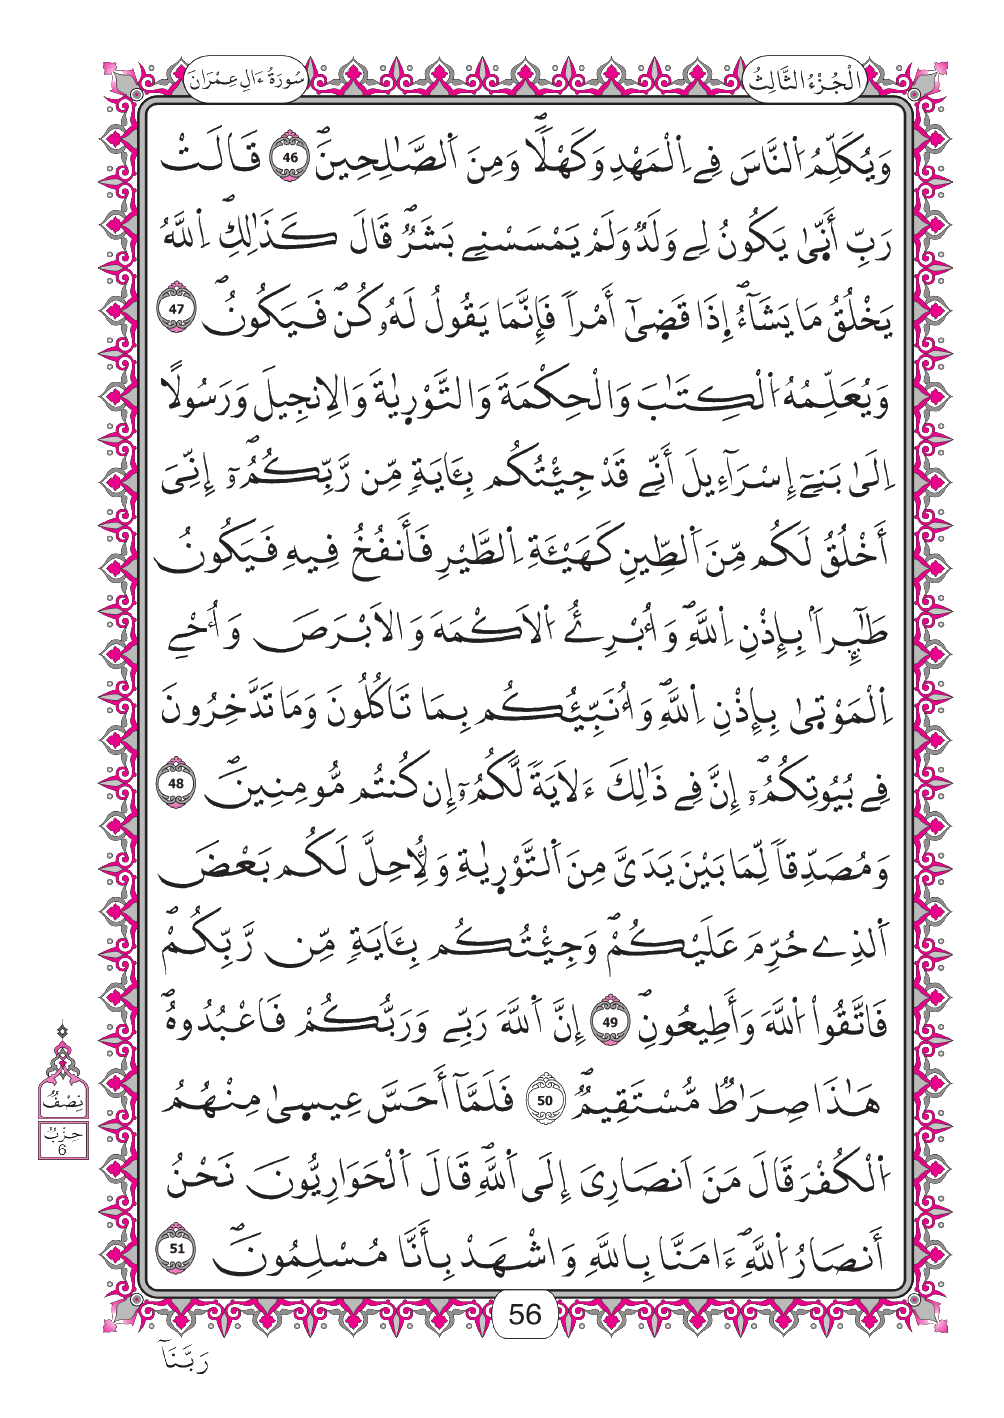 سُورَةُ ءَالِ عِمْرَانَ
اَلْجُزْءُ الثَّالِثُ
وَيُكَلِّمُ اُلنَّاسَ فِے اِلْمَهْدِ وَكَهْلاٗۖ وَمِنَ اَلصَّٰلِحِينَۖ 46 قَالَتْ
رَبِّ أَنّ۪ىٰ يَكُونُ لِے وَلَدٞ وَلَمْ يَمْسَسْنِے بَشَرٞۖ قَالَ كَذَٰلِكِۖ اِ۬للَّهُ
يَخْلُقُ مَا يَشَآءُۖ اِ۪ذَا قَض۪ىٰٓ أَمْراٗ فَإِنَّمَا يَقُولُ لَهُۥ كُنۖ فَيَكُونُۖ 47
وَيُعَلِّمُهُ اُ۬لْكِتَٰبَ وَالْحِكْمَةَ وَالتَّوْر۪يٰةَ وَالِانجِيلَ وَرَسُولاً
اِلَىٰ بَنِےٓ إِسْرَآءِيلَ أَنِّے قَدْ جِئْتُكُم بِـَٔايَةٖ مِّن رَّبِّكُمُۥٓۖ إِنِّىَ
أَخْلُقُ لَكُم مِّنَ اَ۬لطِّينِ كَهَيْـَٔةِ اِ۬لطَّيْرِ فَأَنفُخُ فِيهِ فَيَكُونُ
طَٰٓئِراَۢ بِإِذْنِ اِ۬للَّهِۖ وَأُبْرِئُ اُ۬لَاكْمَهَ وَالَابْرَصَ وَأُحْےِ
اِ۬لْمَوْت۪ىٰ بِإِذْنِ اِ۬للَّهِۖ وَأُنَبِّئُكُم بِمَا تَاكُلُونَ وَمَا تَدَّخِرُونَ
فِے بُيُوتِكُمُۥٓۖ إِنَّ فِے ذَٰلِكَ ءَلَايَةٗ لَّكُمُۥٓ إِن كُنتُم مُّومِنِينَۖ 48
وَمُصَدِّقاٗ لِّمَا بَيْنَ يَدَىَّ مِنَ اَ۬لتَّوْر۪يٰةِ وَلِأُحِلَّ لَكُم بَعْضَ
اَ۬لذِے حُرِّمَ عَلَيْكُمْۖ وَجِئْتُكُم بِـَٔايَةٖ مِّن رَّبِّكُمْۖ
فَاتَّقُواْ اُ۬للَّهَ وَأَطِيعُونِۖ 49 إِنَّ اَ۬للَّهَ رَبِّے وَرَبُّكُمْ فَاعْبُدُوهُۖ
هَٰذَا صِرَٰطٞ مُّسْتَقِيمٞۖ 50 فَلَمَّآ أَحَسَّ عِيس۪ىٰ مِنْهُمُ
اُ۬لْكُفْرَ قَالَ مَنَ اَنصَارِىَ إِلَى اَ۬للَّهِۖ قَالَ اَ۬لْحَوَارِيُّونَ نَحْنُ
أَنصَارُ اُ۬للَّهِۖ ءَامَنَّا بِاللَّهِ وَاشْهَدْ بِأَنَّا مُسْلِمُونَۖ 51
نِصْفٌ
حِزْبٌ
6
56
رَبَّنَآ